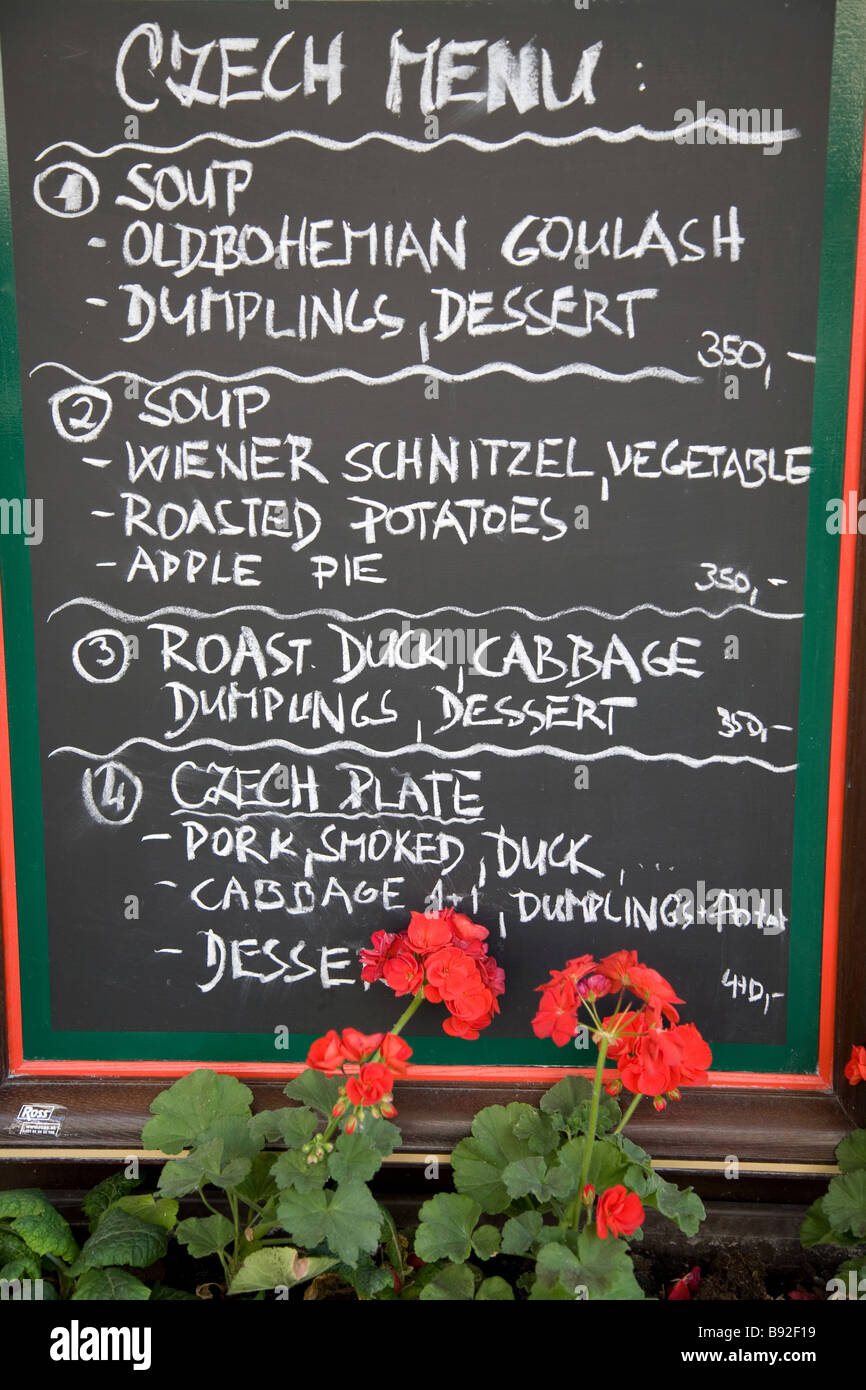 CZECH MENU :
1 SOUP
- OLDBOHEMIAN GOULASH
- DUMPLINGS, DESSERT
350,-
2 SOUP
- WIENER SCHNITZEL, VEGETABLE
- ROASTED POTATOES
- APPLE PIE 350,-
3 ROAST. DUCK, CABBAGE
DUMPLINGS, DESSERT 350,-
4 CZECH PLATE
- PORK, SMOKED, DUCK, ...
- CABBAGE 1+1, DUMPLINGS + Potat
- DESSE
ROSS
alamy
Image ID: B92F19
www.alamy.com